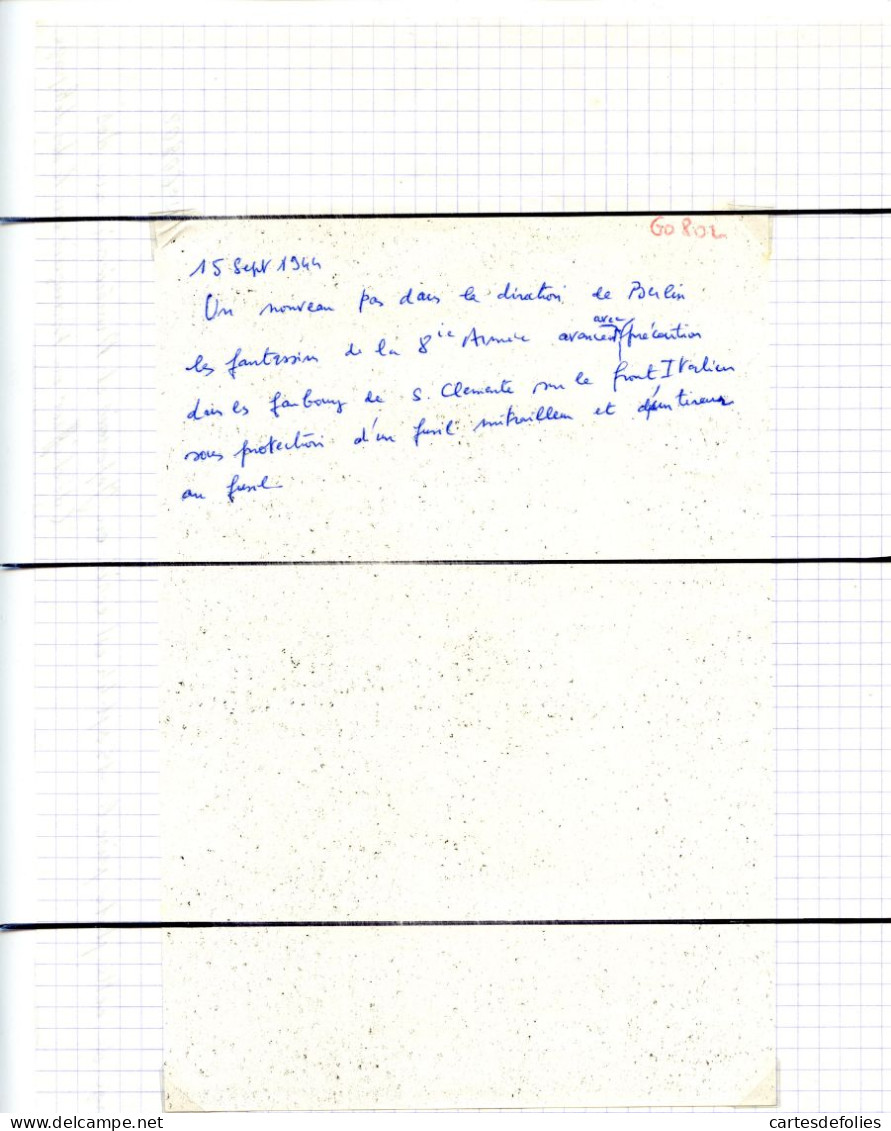 15 Sept 1944
Un nouveau pas dans la direction de Berlin
les fantassins de la 8ie Armée avancent avec précaution
dans les faubourg de S. Clemente sur le front Italien
sous protection d'un fusil mitrailleur et d'un tireur
au fusil
www.delcampe.net
cartesdefolies